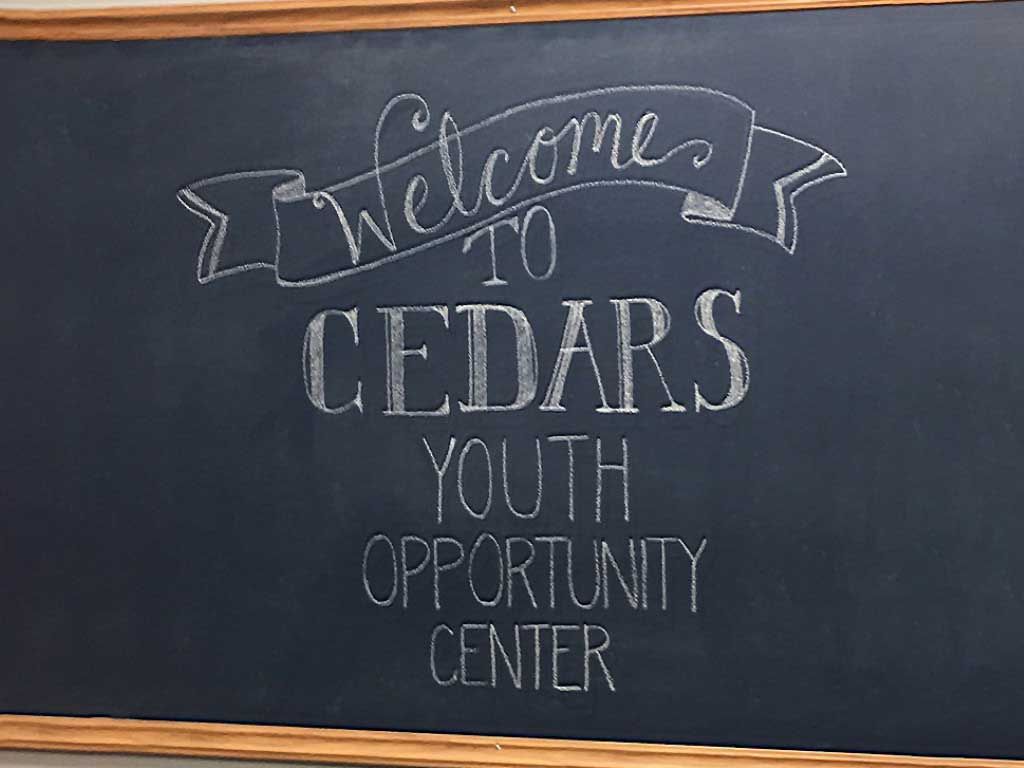 Welcome
TO
CEDARS
YOUTH
OPPORTUNITY
CENTER